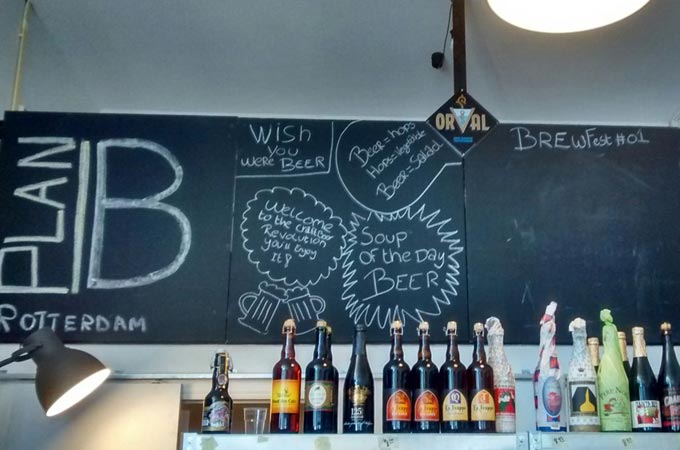 PLAN
B
ROTTERDAM
WisH
you
WeRe BEER
Beer = hops
Hops = Vegetable
Beer = Salad
ORVAL
BREWFest #01
Welcome
to the craftbeer
Revolution
you'll Enjoy
It!
Soup
Of the Day
BEER
125
La Trappe
La Trappe